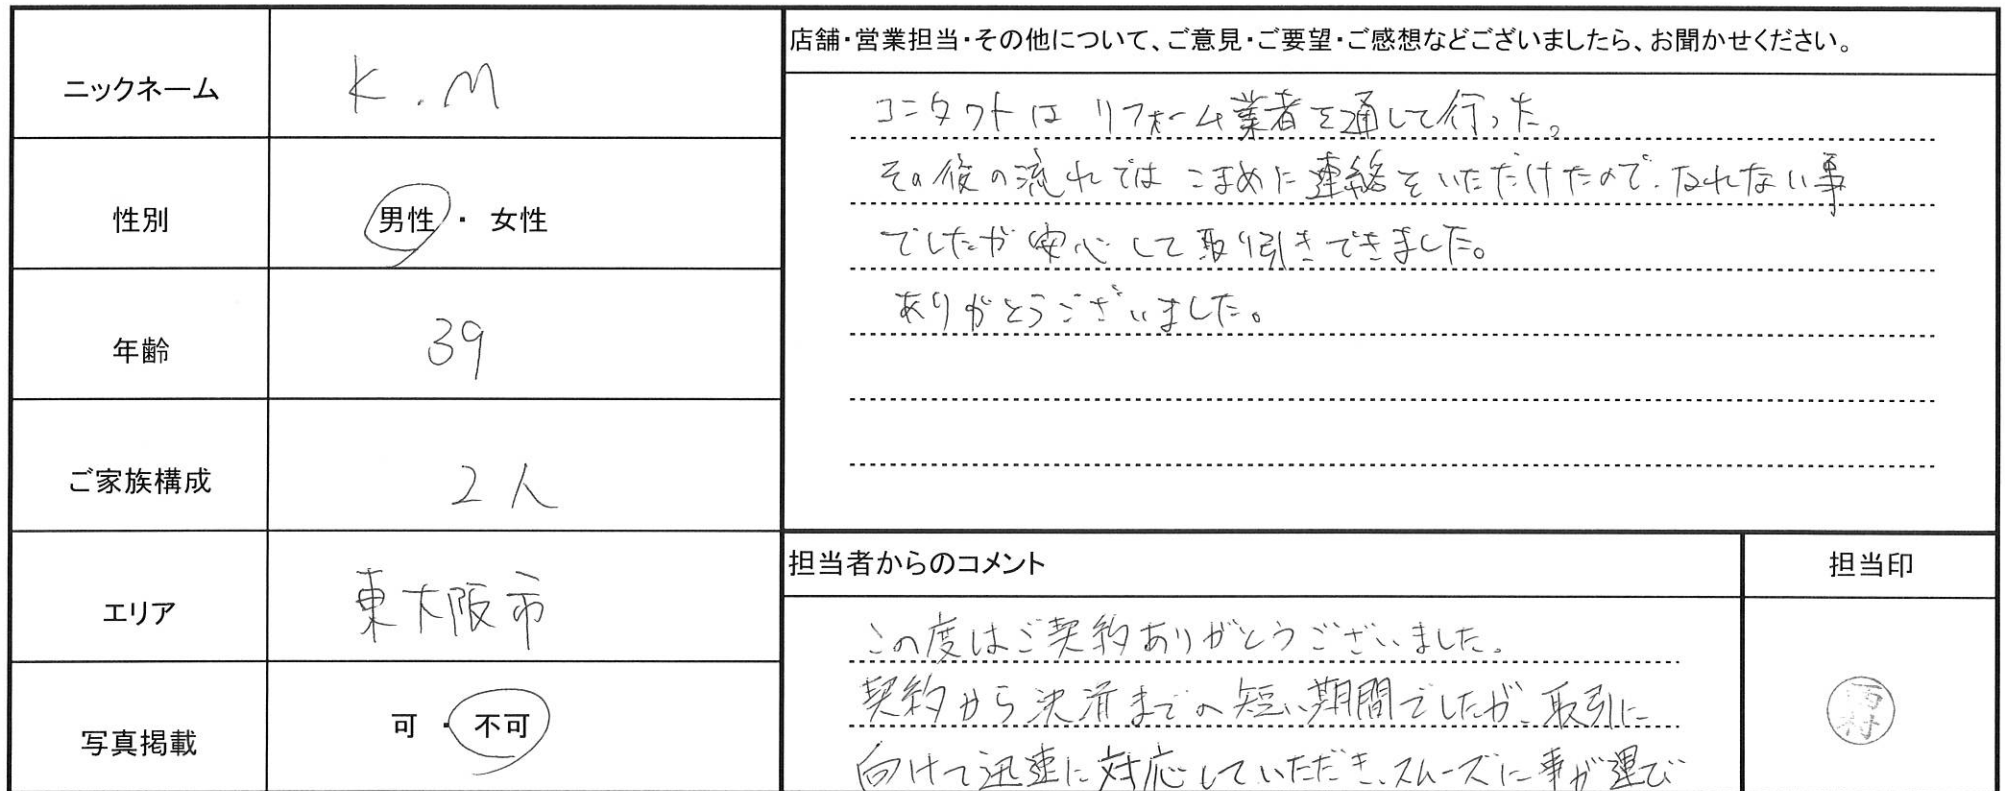 ニックネーム
K.M
性別
男性・女性
年齢
39
ご家族構成
2人
エリア
東大阪市
写真掲載
可・不可
店舗・営業担当・その他について、ご意見・ご要望・ご感想などございましたら、お聞かせください。
コンタクトは リフォーム業者を通して行った。
その後の流れでは こまめに連絡をいただけたので、なれない事
でしたが安心して取り引きできました。
ありがとうございました。
担当者からのコメント
この度はご契約ありがとうございました。
契約から決済までの短い期間でしたが、取引に
向けて迅速に対応していただき、スムーズに事が運び
担当印